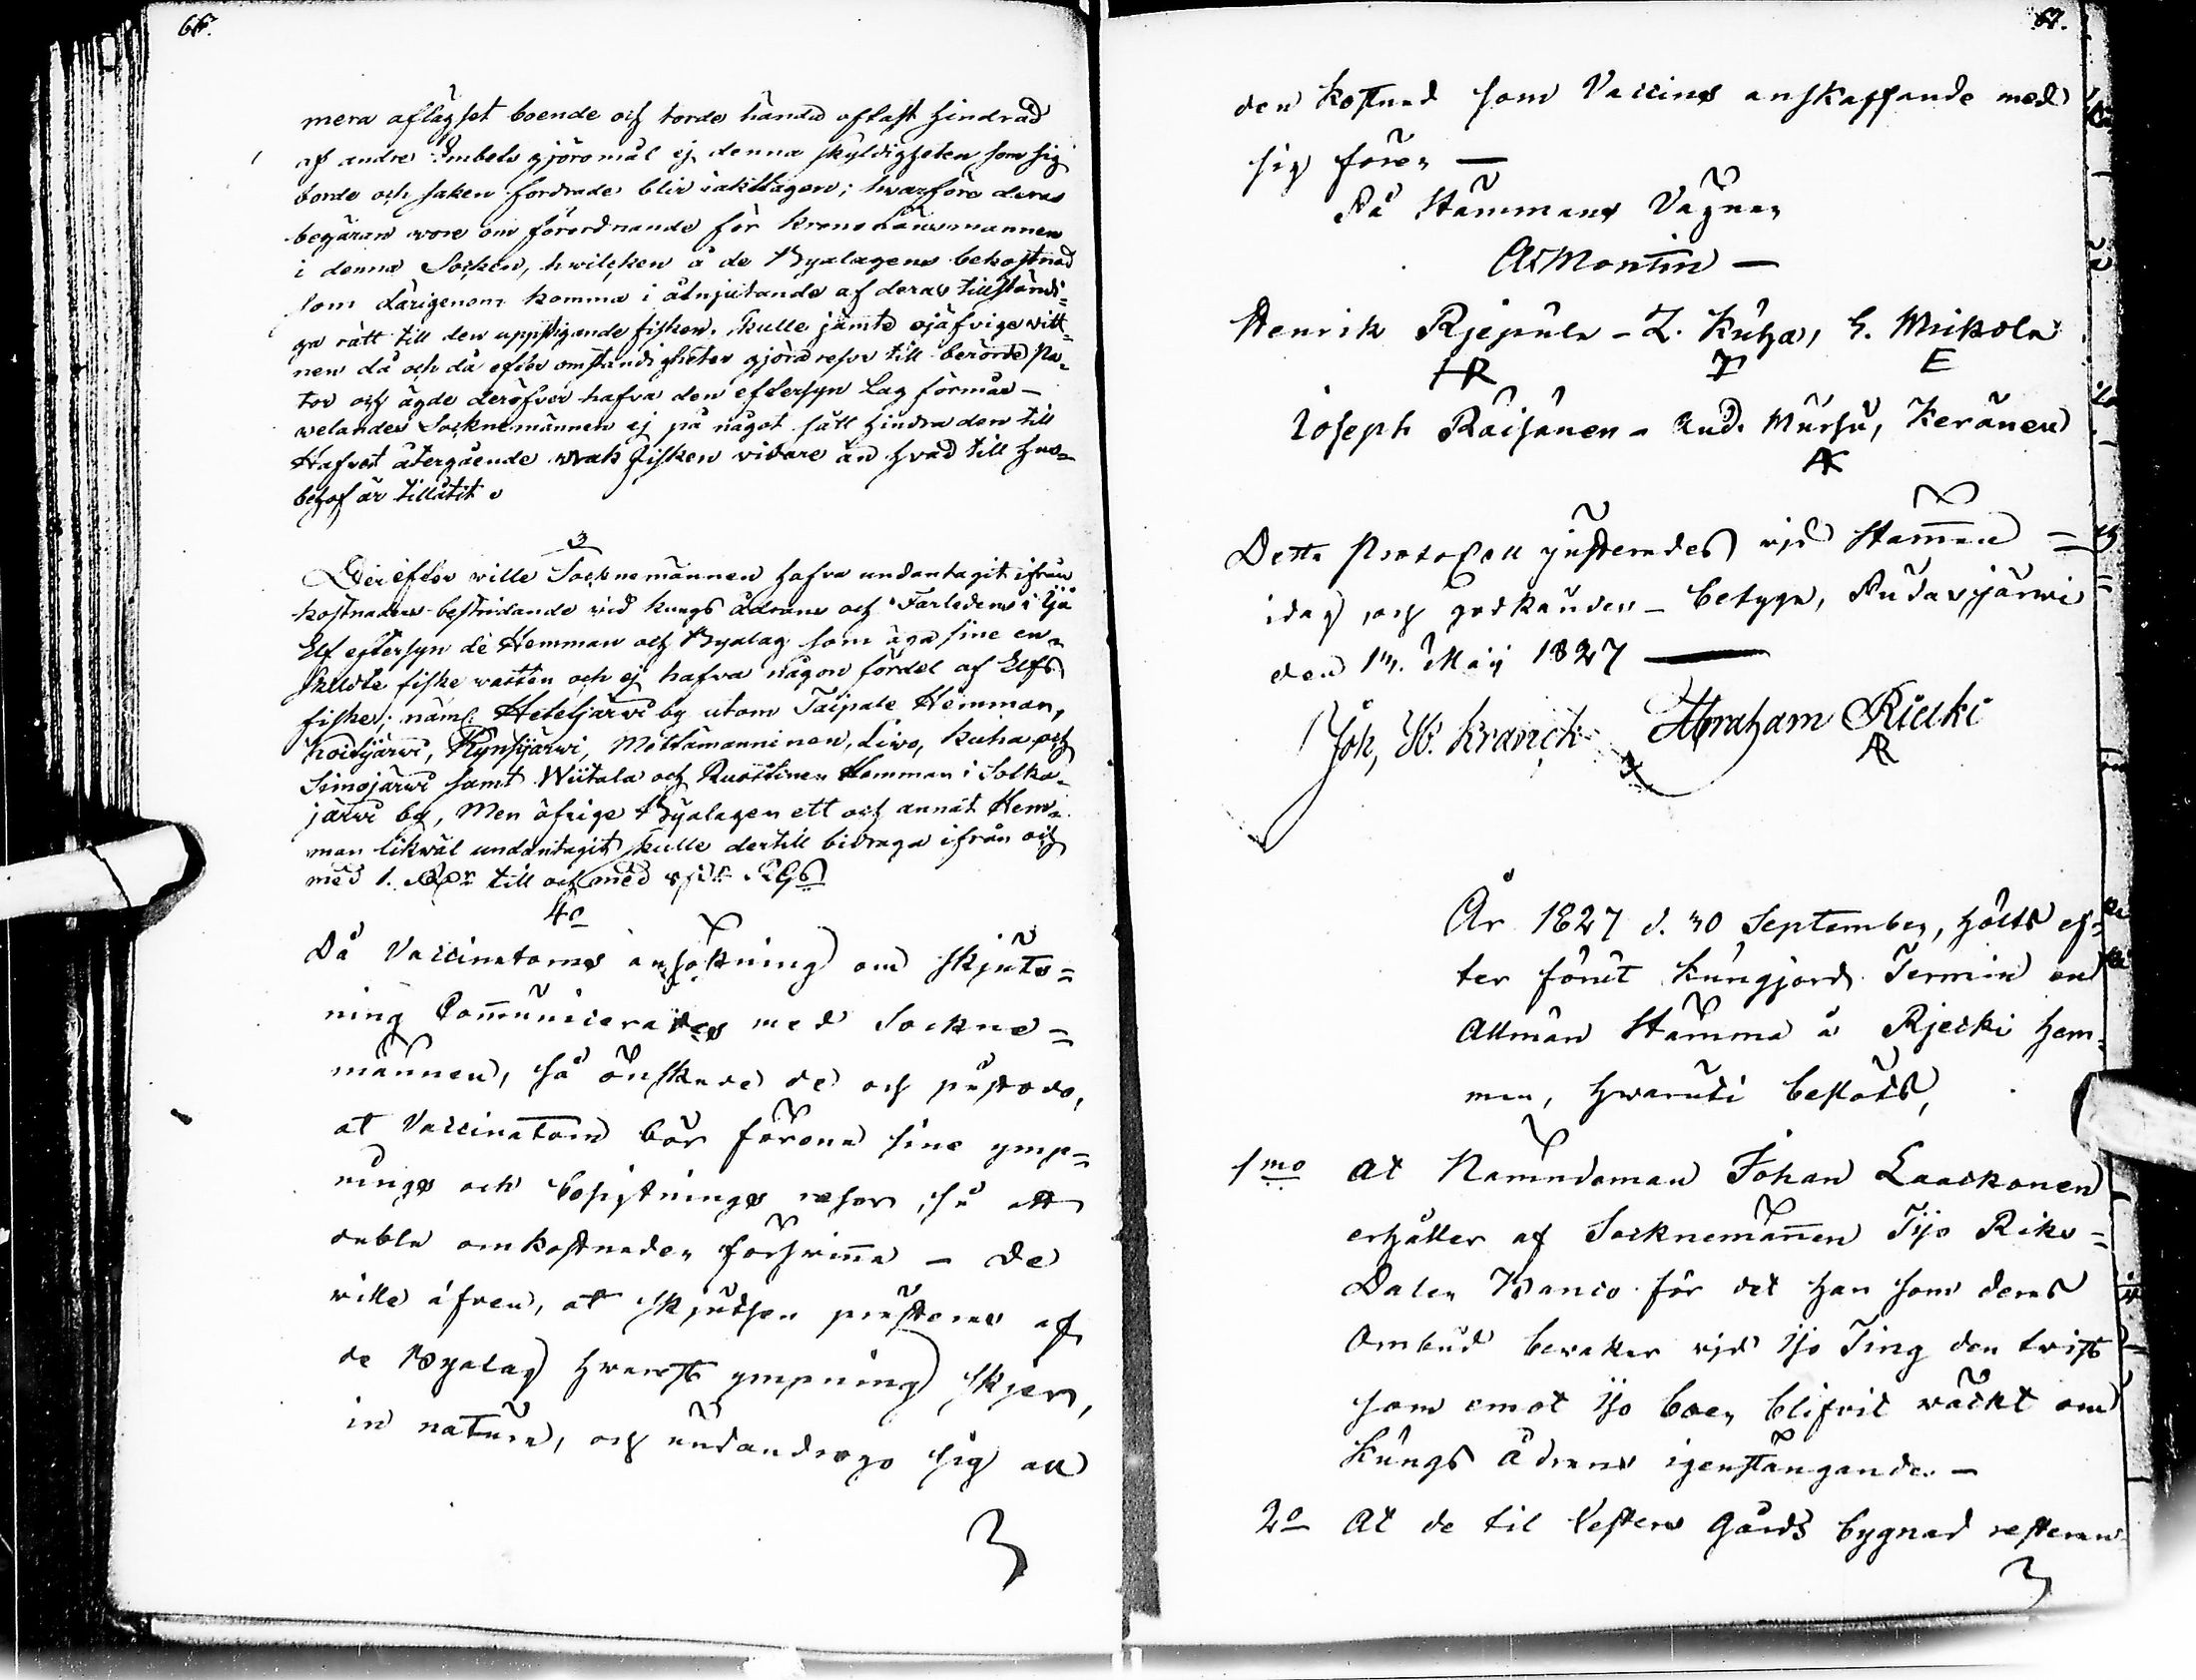 66.
mera aflägset boende och torde hända oftast hindrad
af andre Embets gjöromål ej denna skyldigheten som sig
borde och saken fordrade blir iakttagen; hvarföre deras
begäran vore om förordnande för Kronolänsmannen
i denna Socken, hvilcken å de Byalagens bekostnad
som därigenom komma i åtnjutande af deras tillständi=
ga rätt till den uppstigande fisken, skulle jämte ojäfvige vitt=
nen då och då efter omständigheter gjöra resor till berörde Pa=
tor och ägde deröfver hafva den eftersyn Lag förmår —
velandes Socknemännen ej på något sätt hindra den till
Hafvet återgående vrak fisken vidare än hvad till hus=
behof är tillåtit.
3
Der efter ville Socknemännen hafva undantagit ifrån
kostnadens bestridande vid kungs ådrans och Farledens i Ijå
Elf eftersyn de Hemman och Byalag som äga sine en=
skildte fiske vatten och ej hafva någon fördel af Elfs
fisket; näml. Heteljärvi by utom Taipale Hemman,
Koisijärvi, Kynsijärvi, Mettämanninen, Livo, Kuha och
Simojärvi samt Wiitala och Ruottinen Hemman i Solka=
järvi by, Men öfrige Byalagen ett och annat Hem=
man likväl undantagit skulle dertill bidraga ifrån och
med 1. till och med
4o
Då Vaccinatorns ansökning om skjuts=
ning Communicerades med Sockne=
männen, så önskade de och påstodo,
at Vaccinatorn bör förena sine ymp=
nings och besigtnings resor, så att
dubla omkostnaden försvinna — De
ville äfven, at skjutsen presteras af
de Byalag hvarest ympning skjer,
in natura, och undandrogo sig all
67.
den kostnad som Vaccins anskaffande med
sig förer —
På Stämmans Vägnar
A: Montin —
Henrik Rjepula – Z. Kuha, E. Mikola
HR E
Joseph Räisänen – And. Mursu, Keränen
AK
Detta Protocoll justerades vid Stämma =
idag, och godkändes — betyga, Pudasjärvi
den 13. Maij 1827 —
Joh, W. Kranck Abraham Riecki
AR
År 1827 d. 30 September, hölts ef=
ter förut kungjord Termin en
Allmän Stämma å Rjecki hem=
man, hvaruti beslöts,
1mo At Nämndeman Johan Laackonen
erhåller af Socknemännen Tijo Riks=
Daler Banco för det han som deras
Ombud bevakar vid Ijo Ting den tvist
som emot Ijo boer blifvit väckt om
Kungs ådrans igenstängande. —
2o At de til Prestens Gårds bygnad resteran